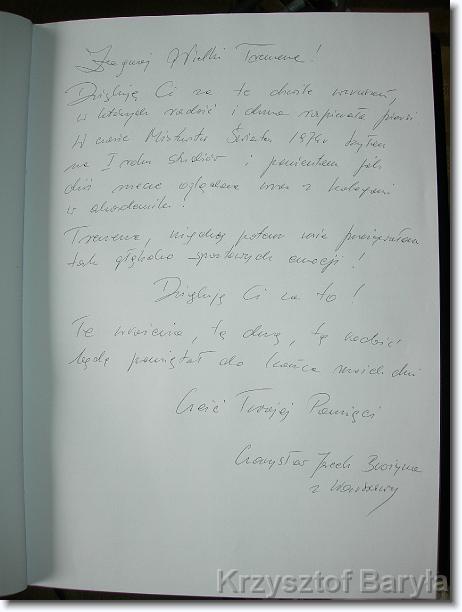 Żegnaj Wielki Trenerze!
Dziękuję Ci za te chwile wzruszeń,
w których radość i duma rozpierała piersi
W czasie Mistrzostw Świata 1974r byłem
na I roku studiów i pamiętam jak
dziś mecze oglądane wraz z kolegami
w akademiku.
Trenerze, nigdy potem nie przeżywałem
tak głęboko sportowych emocji!
Dziękuję Ci za to!
Te wrażenia, tę dumę, tę radość
będę pamiętał do końca moich dni
Cześć Twojej Pamięci
Jacek
z Warszawy
Krzysztof Baryła